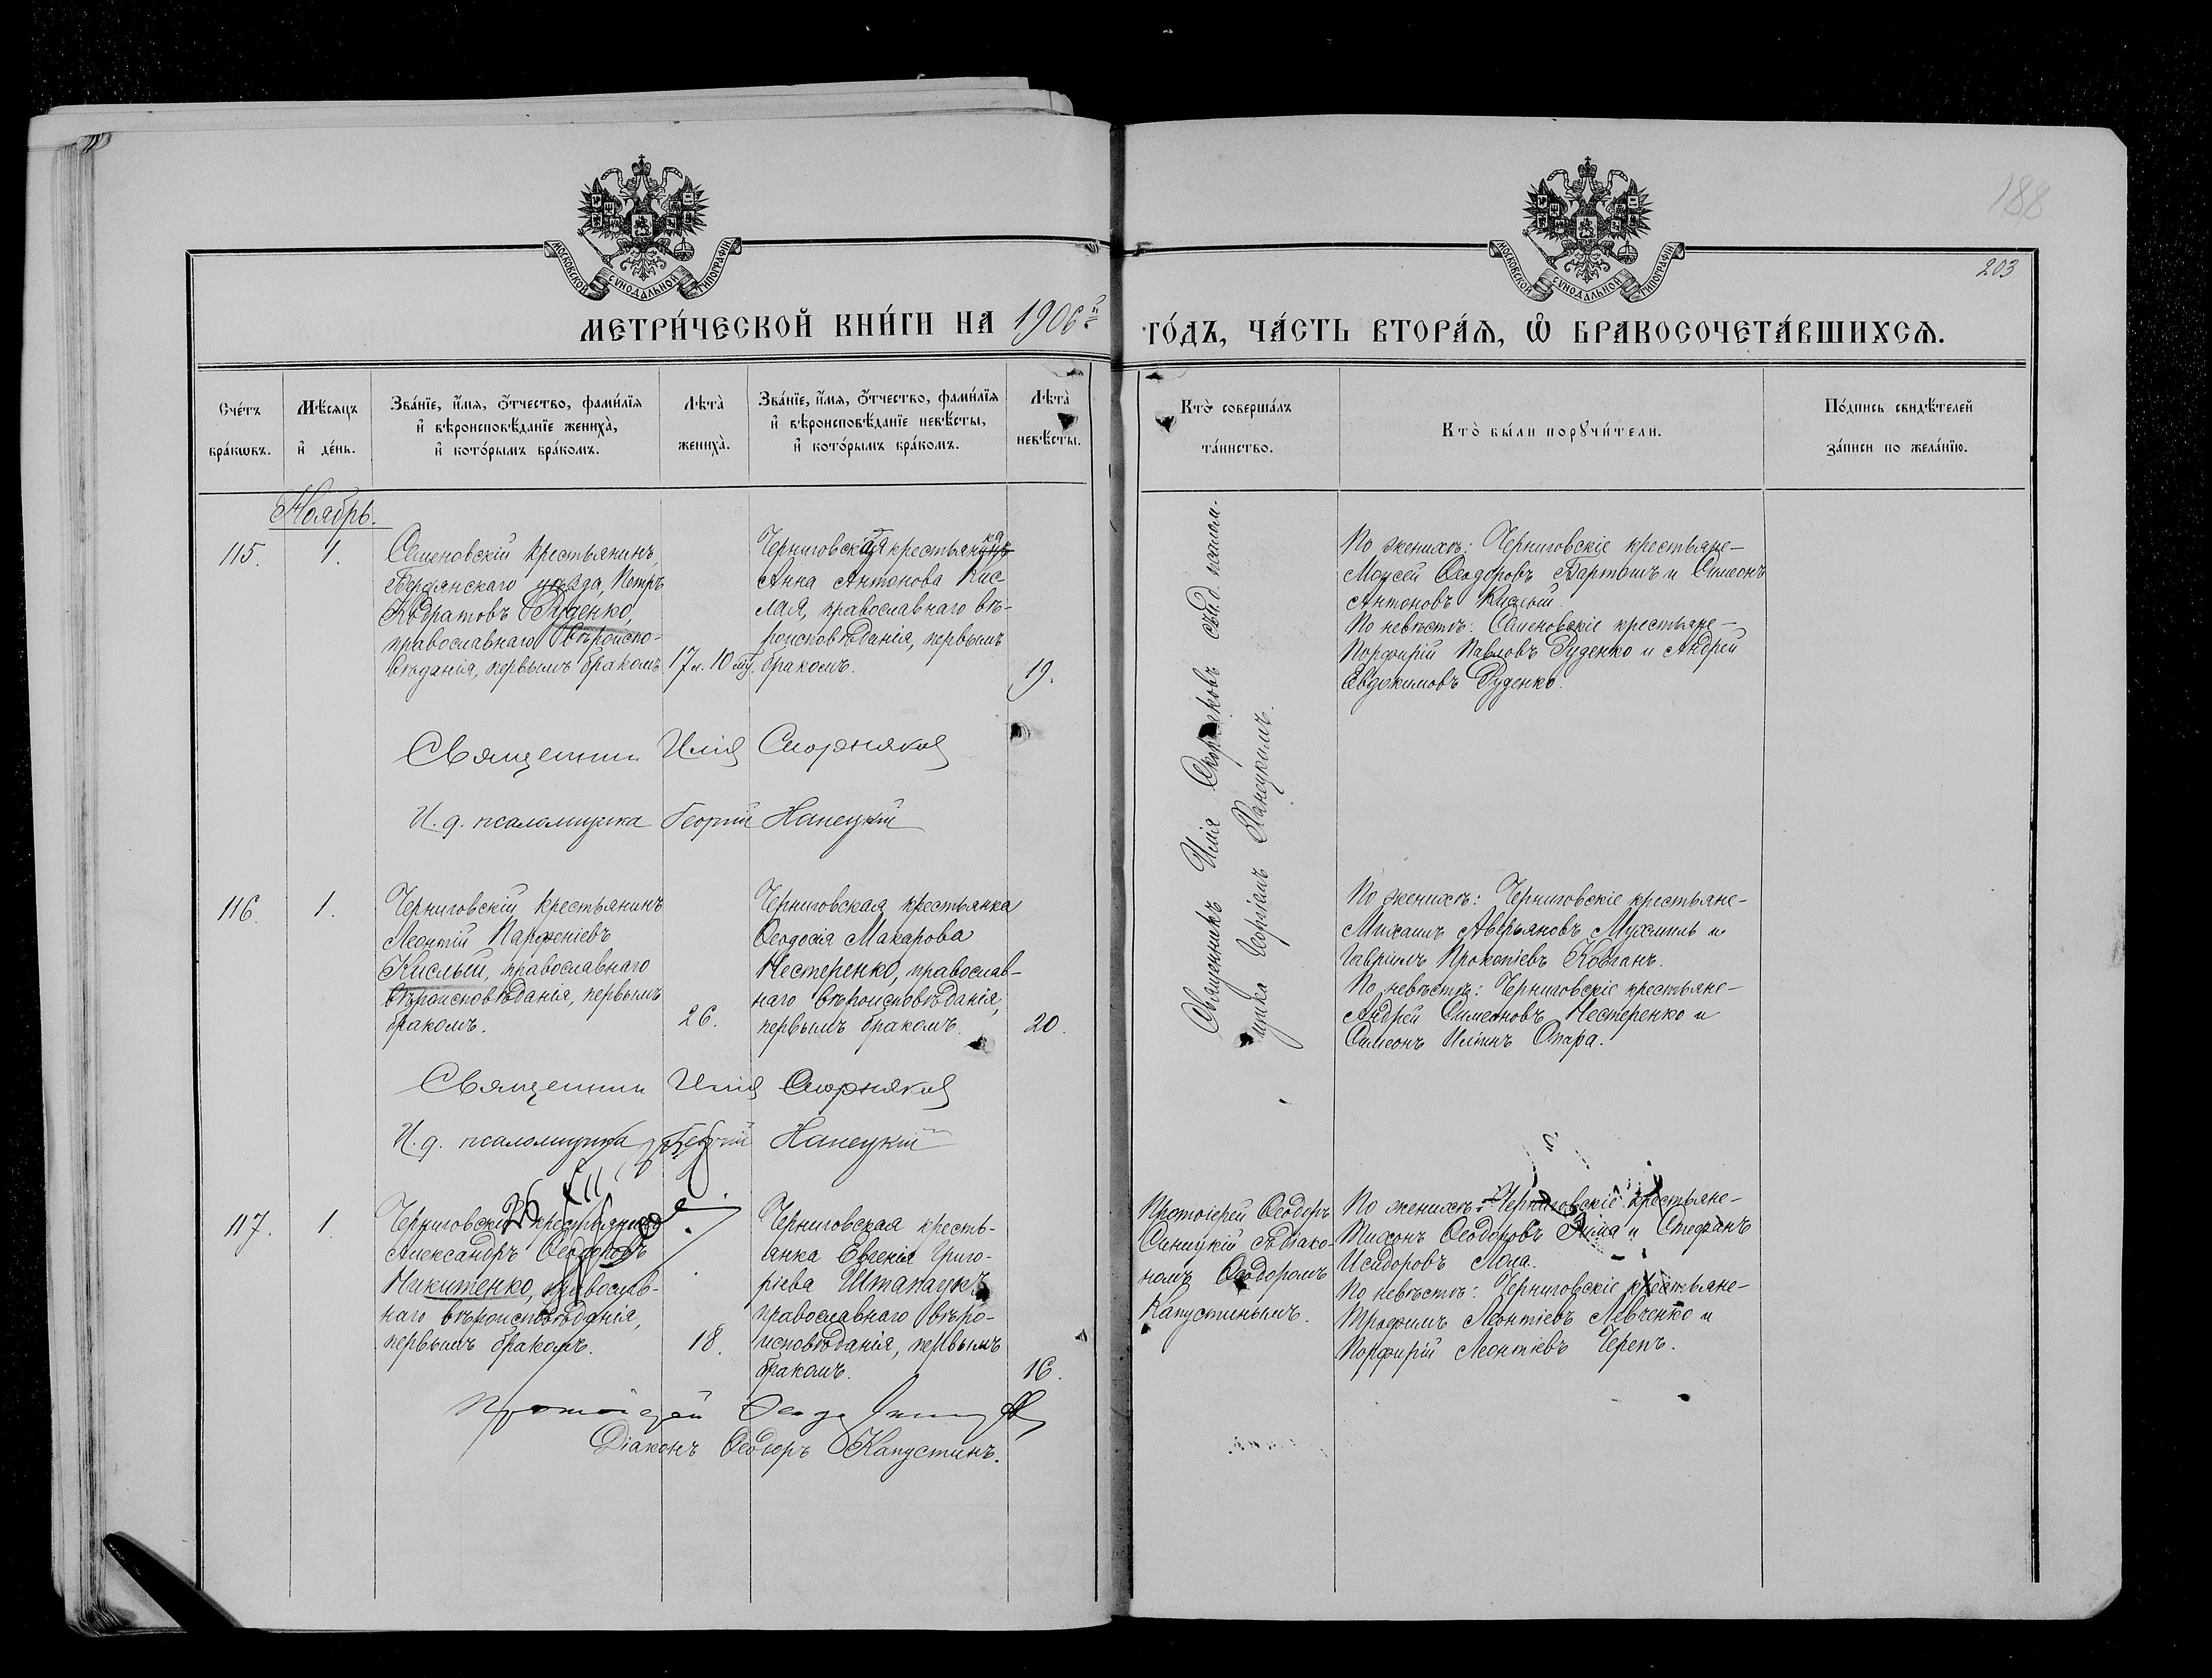 188
203
МОСКОВСКОЙ СѴНОДАЛЬНОЙ ТИПОГРАФІИ
МОСКОВСКОЙ СѴНОДАЛЬНОЙ ТИПОГРАФІИ
МЕТРИ́ЧЕСКОЙ КНИ́ГИ НА 1906й
ГО́ДЪ, ЧА́СТЬ ВТОРА́Ѧ, Ѽ БРАКОСОЧЕТА́ВШИХСѦ.
Сче́тъ
бра́кѡвъ.
Мѣ́сяцъ
и҆ де́нь.
Зва́нїе, и҆́мя, ѻ҆́тчество, фами́лїя
и҆ вѣроисповѣ́данїе жениха̀,
и҆ кото́рымъ бра́комъ.
Лѣта̀
жениха̀.
Зва́нїе, и҆́мя, ѻ҆́тчество, фами́лїя
и҆ вѣроисповѣ́данїе невѣ́сты,
и҆ кото́рымъ бра́комъ.
Лѣта̀
невѣ́сты.
Кто̀ соверша́лъ
та́инство.
Кто̀ бы́ли порꙋчи́тели.
По́дпись свидѣ́телей
за́писи по жела́нїю.
Ноябрь.
115.
1.
Семеновскій крестьянинъ,
Бердянскаго уѣзда, Петръ
Кодратовъ Руденко,
православнаго вѣроиспо-
вѣданія, первымъ бракомъ.
17 л. 10 м.
Черниговская крестьянка
Анна Антонова Кис-
лая, православнаго вѣ-
роисповѣданія, первымъ
бракомъ.
19.
Священникъ Илія Скорняковъ съ и. д. псалом-
щика Георгіемъ Ханецкимъ.
По женихѣ: Черниговскіе крестьяне-
Моисей Ѳеодоровъ Бартошъ и Симеонъ
Антоновъ Кислый.
По невѣстѣ: Семеновскіе крестьяне-
Порфирій Павловъ Руденко и Андрей
Евдокимовъ Руденко.
Священникъ Илія Скорняковъ
И. д. псаломщика Георгій Ханецкій
116.
1.
Черниговскій крестьянинъ
Леонтій Парѳеніевъ
Кислый, православнаго
вѣроисповѣданія, первымъ
бракомъ.
26.
Черниговская крестьянка
Ѳеодосія Макарова
Нестеренко, православ-
наго вѣроисповѣданія,
первымъ бракомъ.
20.
По женихѣ: Черниговскіе крестьяне-
Михаилъ Аверьяновъ и
Гавріилъ Прокопіевъ Ковганъ.
По невѣстѣ: Черниговскіе крестьяне-
Андрей Симеоновъ Нестеренко и
Симеонъ Иліинъ Опара.
Священникъ Илія Скорняковъ
И. д. псаломщика Георгій Ханецкій
117.
1.
Черниговскій крестьянинъ
Александръ Ѳеодоровъ
Никитенко, православ-
наго вѣроисповѣданія,
первымъ бракомъ.
18.
Черниговская кресть-
янка Евгенія Григо-
ріева
православнаго вѣро-
исповѣданія, первымъ
бракомъ.
16.
Протоіерей Ѳеодоръ
Синицкій съ діако-
номъ Ѳеодоромъ
Капустинымъ.
По женихѣ: Черниговскіе крестьяне-
Тихонъ Ѳеодоровъ и Стефанъ
Исидоровъ
По невѣстѣ: Черниговскіе крестьяне-
Трофимъ Леонтіевъ Левченко и
Порфирій Леонтіевъ Черепъ.
Протоіерей
Діаконъ Ѳеодоръ Капустинъ.